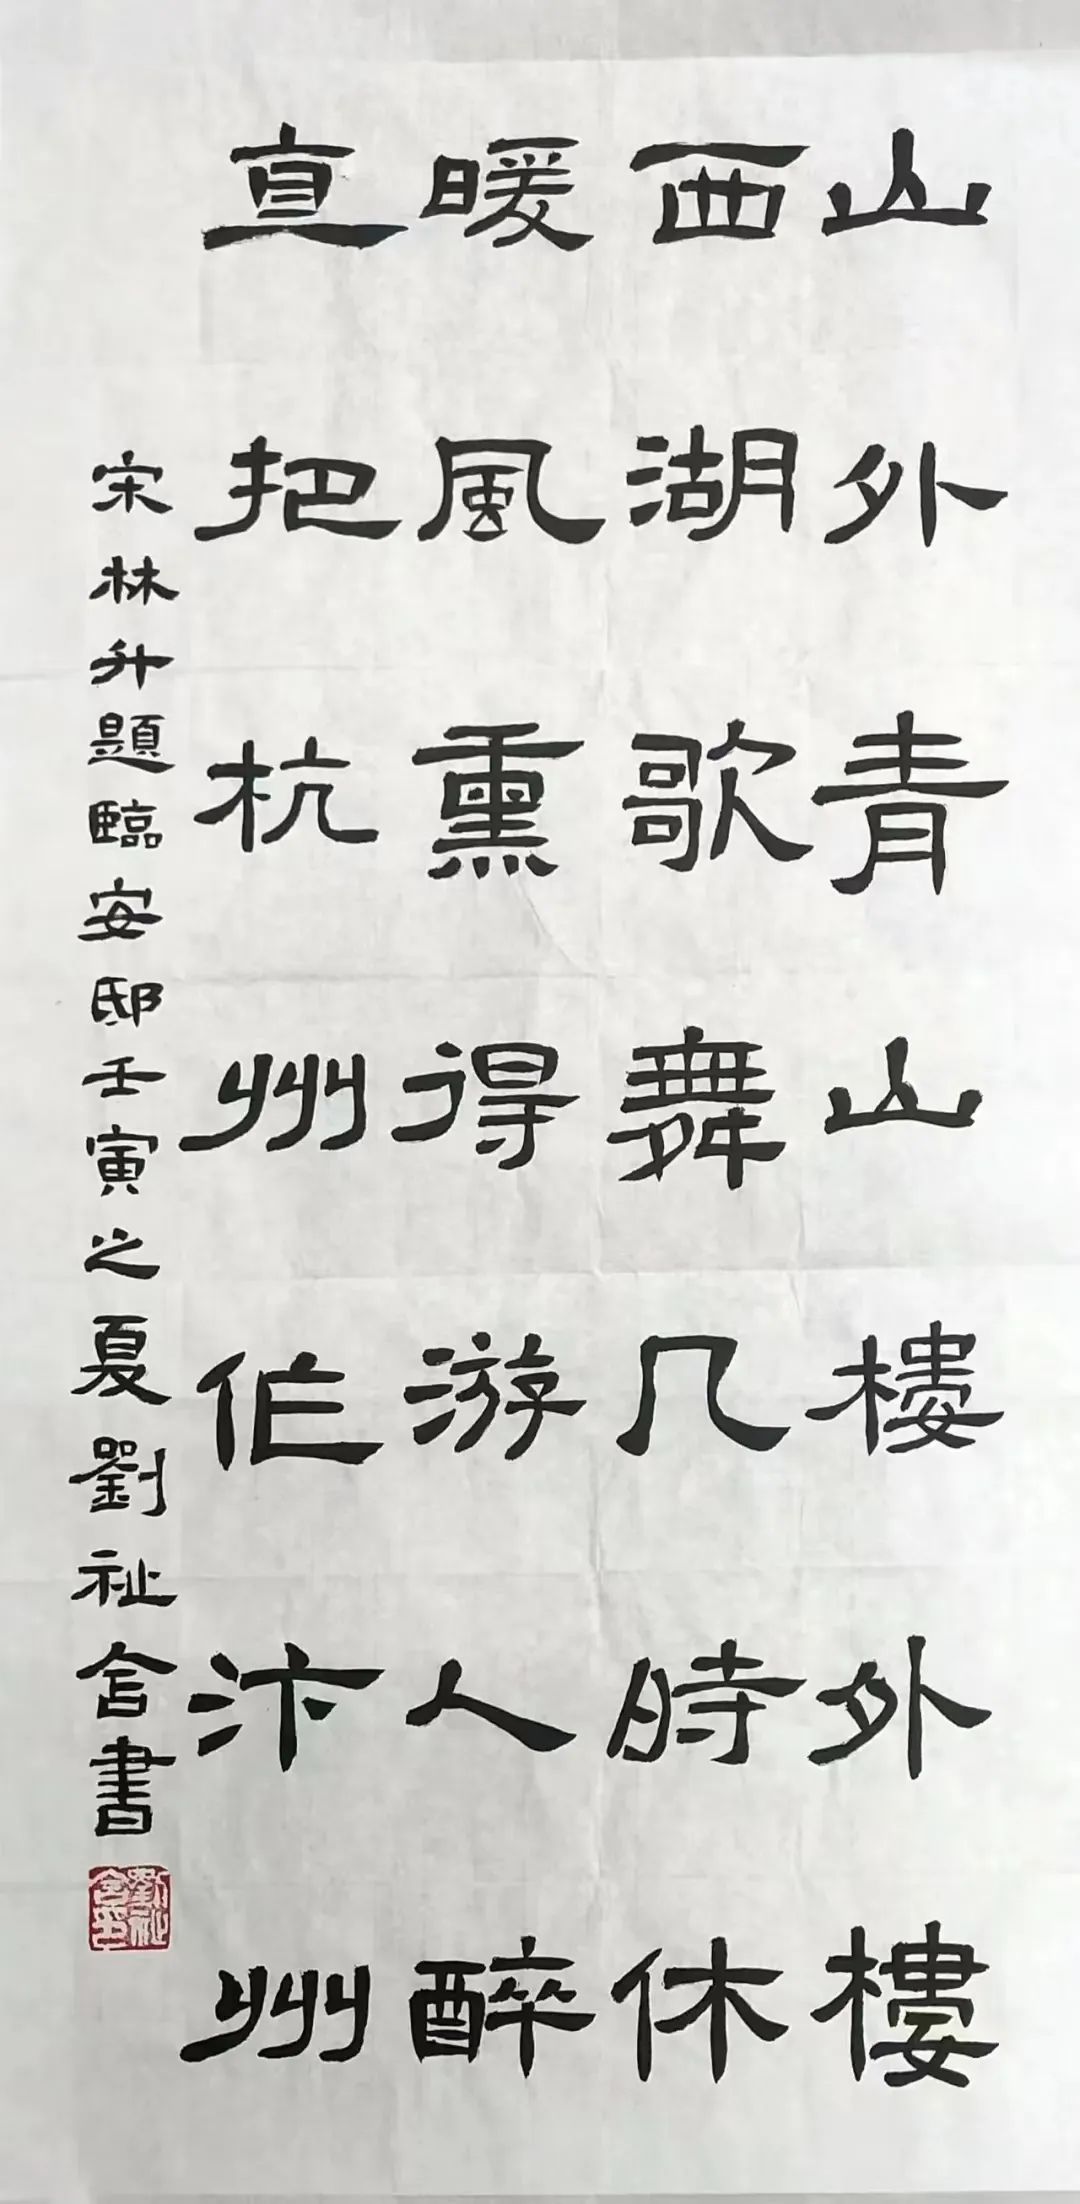 山外青山樓外樓
西湖歌舞几時休
暖風熏得游人醉
直把杭州作汴州
宋林升題臨安邸壬寅之夏劉祉含書